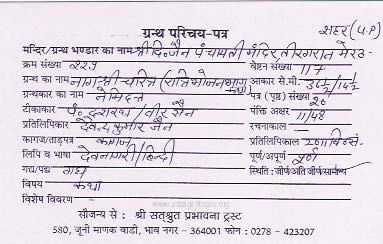 ग्रन्थ परिचय-पत्र
शहर (U.P)
मन्दिर/ग्रन्थ भण्डार का नाम- श्री दि. जैन पंचायती मंदिर, तीरगरान मेरठ
क्रम संख्या 229 वेष्टन संख्या 117
ग्रन्थ का नाम नागश्री चरित्र (रात्रिभोजनत्याग कथा) आकार से.मी. 36½/14½
ग्रन्थकार का नाम नेमिदत्त पत्र (पृष्ठ) संख्या 20
टीकाकार पंक्ति अक्षर 11/48
प्रतिलिपिकार देवेन्द्र कुमार जैन रचनाकाल
कागज/ताड़पत्र कागज प्रतिलिपिकाल 2011 वि.सं.
लिपि व भाषा देवनागरी/हिन्दी पूर्ण/अपूर्ण पूर्ण
गद्य/पद्य गद्य स्थिति : जीर्ण/अति जीर्ण/सामान्य
विषय कथा
विशेष विवरण
सौजन्य से : श्री सतश्रुत प्रभावना ट्रस्ट
580, जूनी माणक वाडी, भाव नगर - 364001 फोन : 0278 - 423207